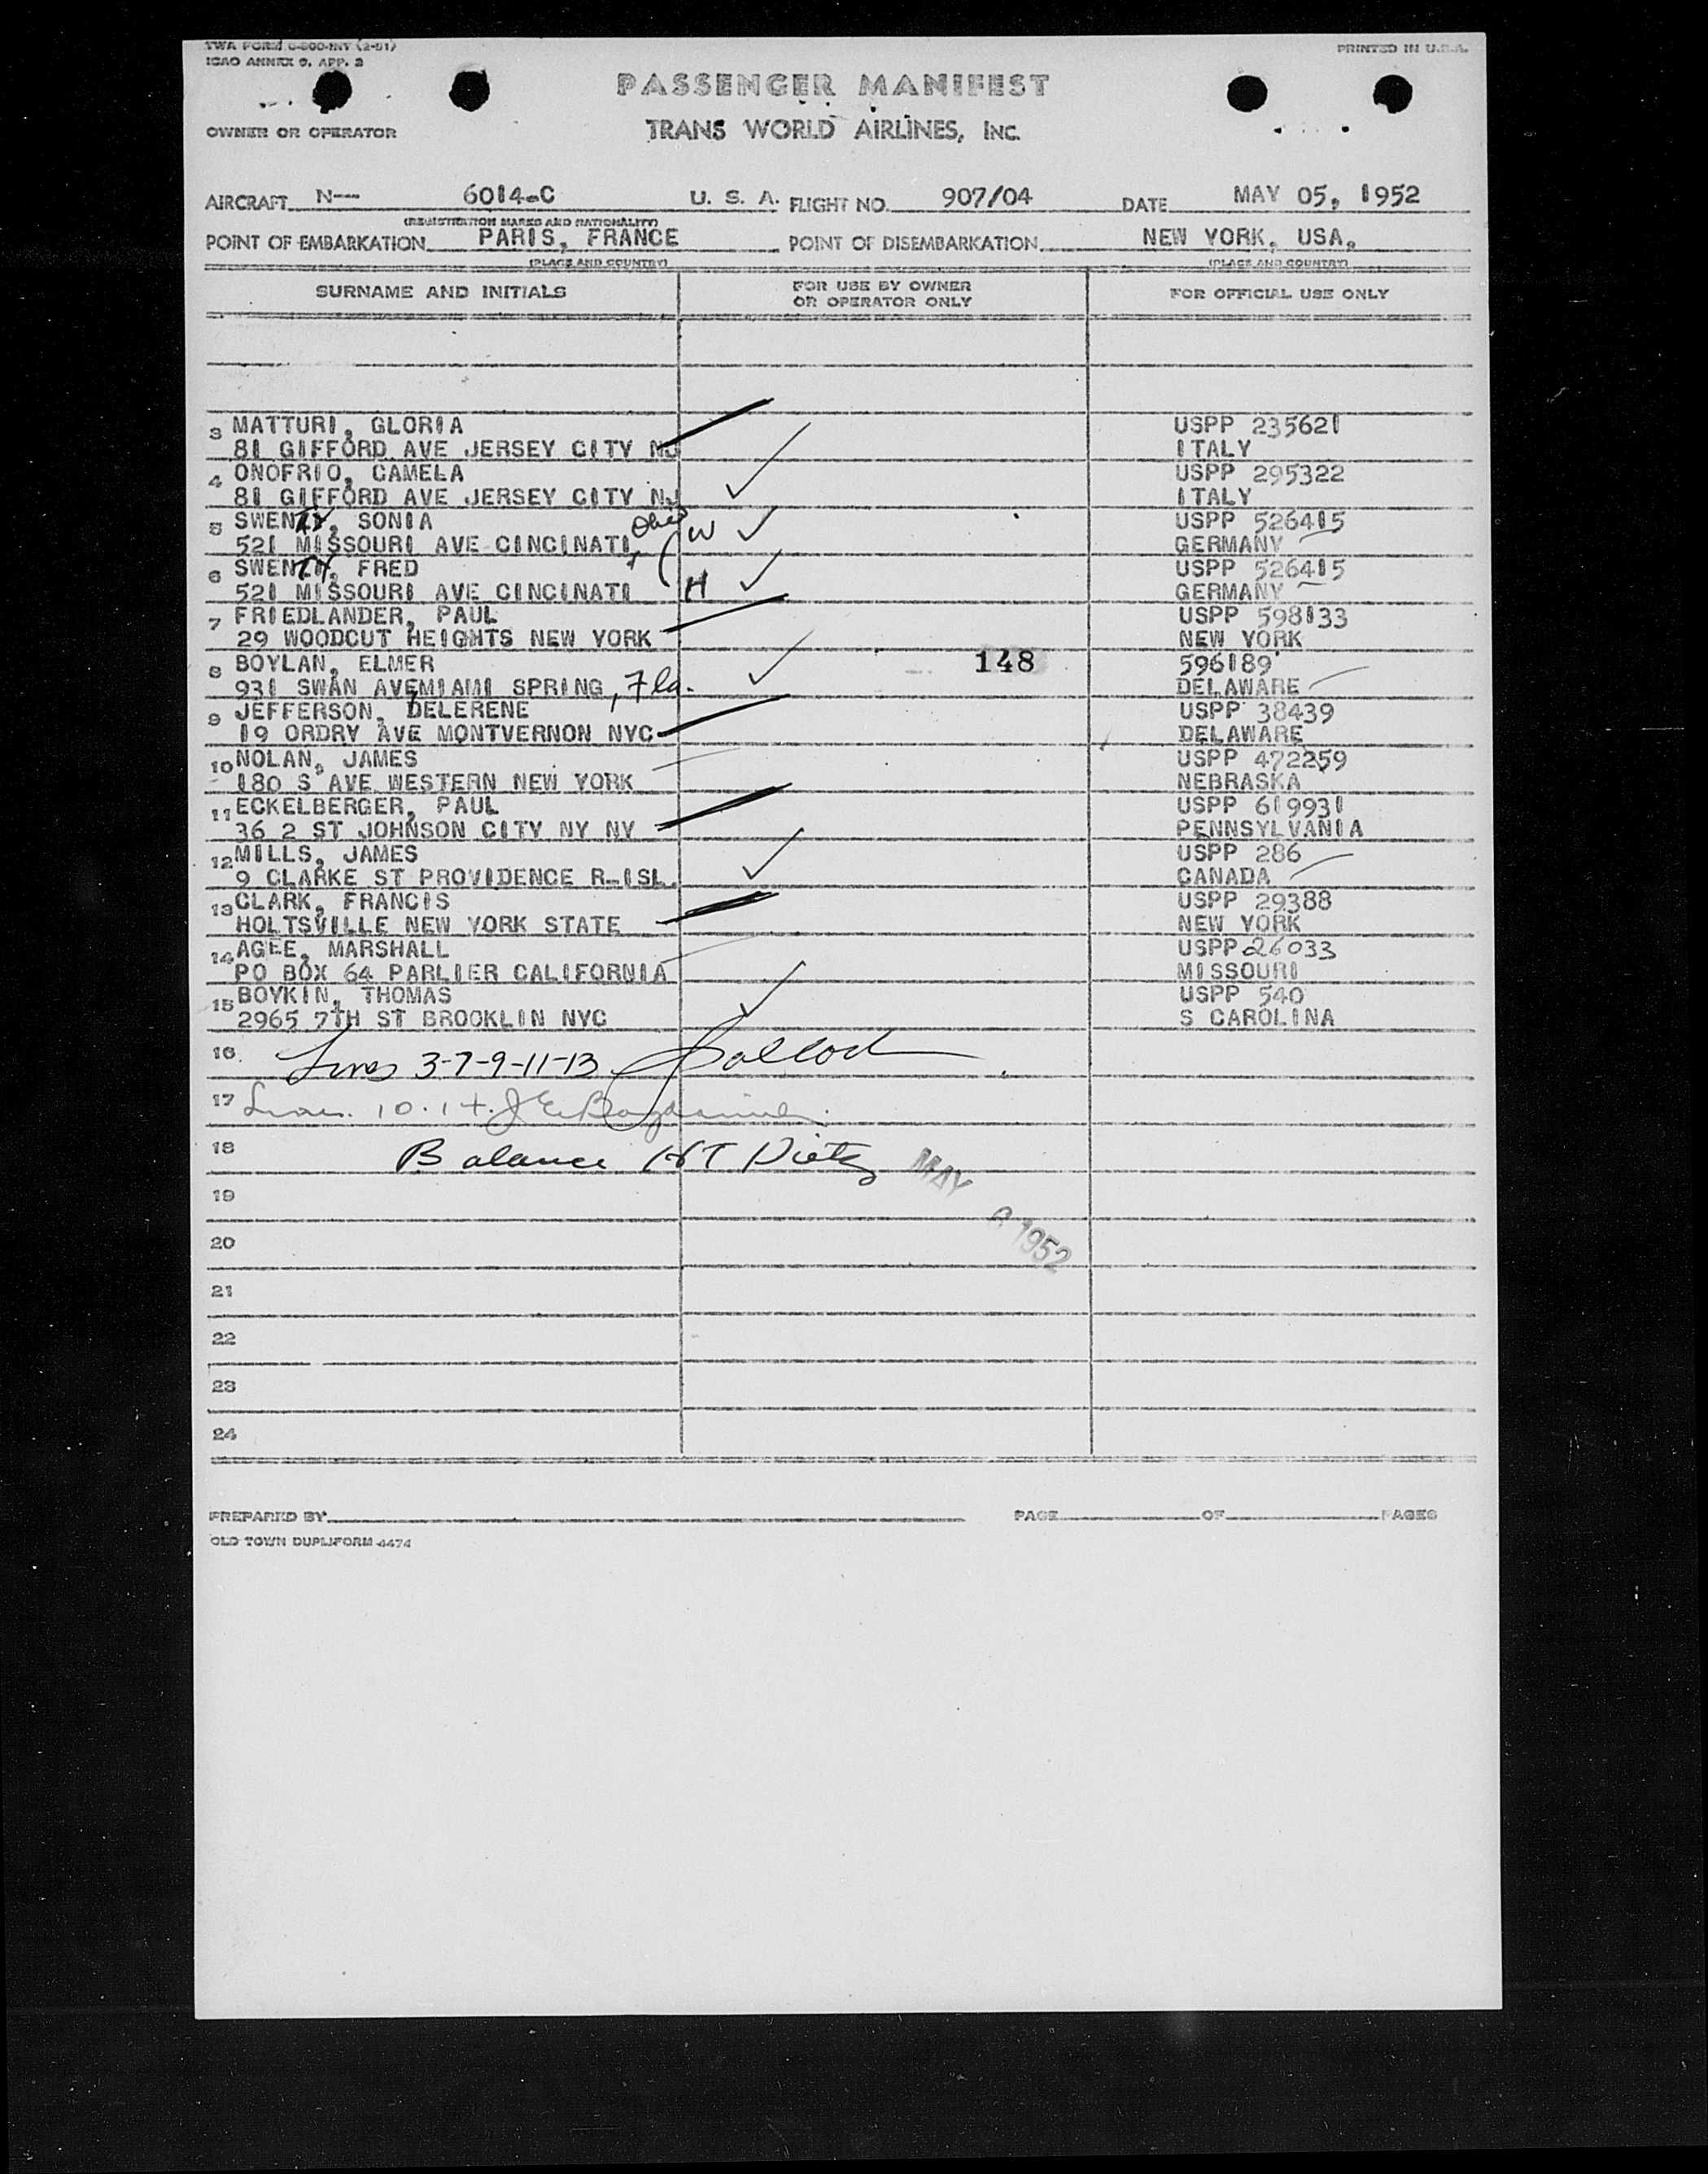 TWA FORM 0-800-INT (2-51)
PRINTED IN U.S.A.
ICAO ANNEX 9, APP. 2
PASSENGER MANIFEST
OWNER OR OPERATOR
TRANS WORLD AIRLINES, INC.
AIRCRAFT N-- 6014-C U. S. A. FLIGHT NO. 907/04 DATE MAY 05, 1952
(REGISTRATION MARKS AND NATIONALITY)
POINT OF EMBARKATION PARIS, FRANCE POINT OF DISEMBARKATION NEW YORK, USA,
(PLACE AND COUNTRY) (PLACE AND COUNTRY)
SURNAME AND INITIALS FOR USE BY OWNER OR OPERATOR ONLY FOR OFFICIAL USE ONLY
3 MATTURI, GLORIA USPP 235621
81 GIFFORD AVE JERSEY CITY NJ ITALY
4 ONOFRIO, CAMELA USPP 295322
81 GIFFORD AVE JERSEY CITY NJ ITALY
5 SWENTY, SONIA USPP 526415
521 MISSOURI AVE CINCINATI Ohio W GERMANY
6 SWENTY, FRED USPP 526415
521 MISSOURI AVE CINCINATI H GERMANY
7 FRIEDLANDER, PAUL USPP 598133
29 WOODCUT HEIGHTS NEW YORK NEW YORK
8 BOYLAN, ELMER 148 596189
931 SWAN AVEMIAMI SPRING, Fla. DELAWARE
9 JEFFERSON, DELERENE USPP 38439
19 ORDRY AVE MONTVERNON NYC DELAWARE
10 NOLAN, JAMES USPP 472259
180 S AVE WESTERN NEW YORK NEBRASKA
11 ECKELBERGER, PAUL USPP 619931
36 2 ST JOHNSON CITY NY NY PENNSYLVANIA
12 MILLS, JAMES USPP 286
9 CLARKE ST PROVIDENCE R-ISL. CANADA
13 CLARK, FRANCIS USPP 29388
HOLTSVILLE NEW YORK STATE NEW YORK
14 AGEE, MARSHALL USPP 26033
PO BOX 64 PARLIER CALIFORNIA MISSOURI
15 BOYKIN, THOMAS USPP 540
2965 7TH ST BROOKLIN NYC S CAROLINA
16 Lines 3-7-9-11-13
17 10.14.
18 Balance HT Dietz
MAY 1952
19
20
21
22
23
24
PREPARED BY PAGE OF PAGES
OLD TOWN DUPLIFORM 4474